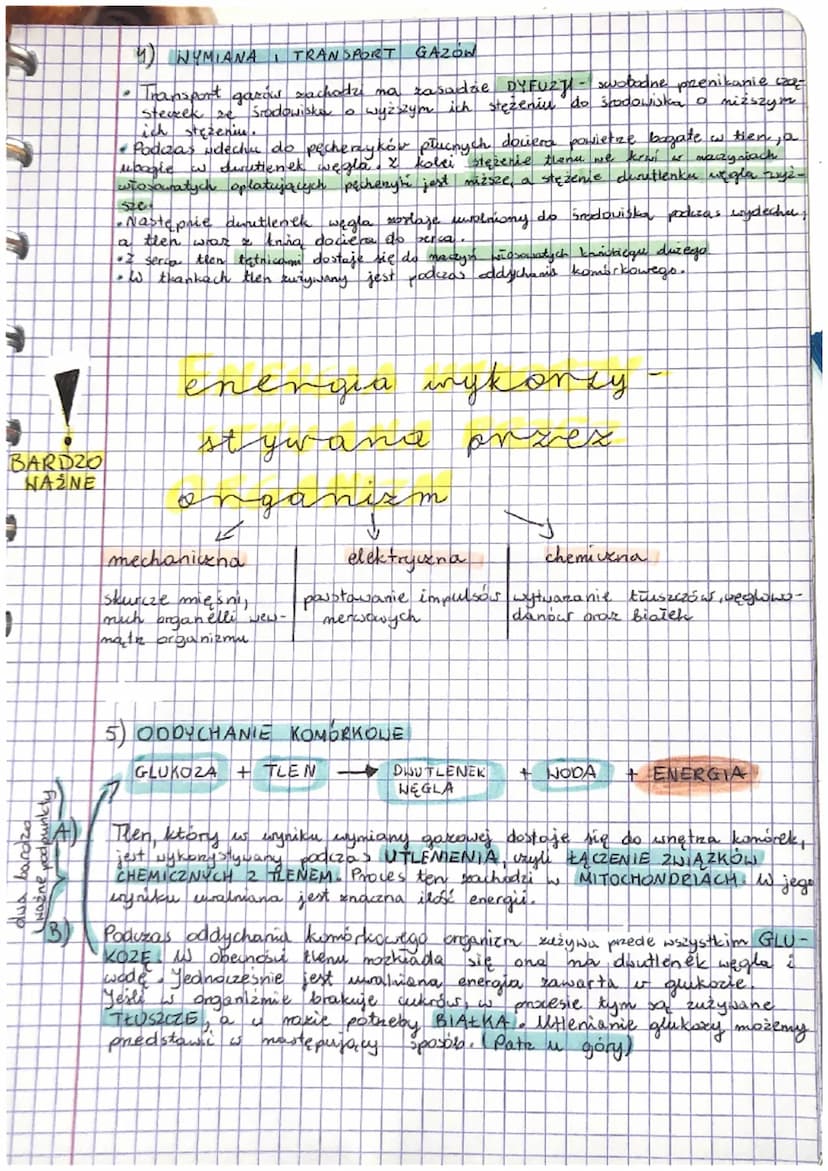 4) WYMIANA I TRANSPORT GAZÓW
• Transport gazów zachodzi na zasadzie DYFUZJI - swobodne przenikanie czą-
steczek ze środowiska o wyższym ich stężeniu do środowiska o niższym
ich stężeniu.
• Podczas wdechu do pęcherzyków płucnych dociera powietrze bogate w tlen, a
ubogie w dwutlenek węgla. Z kolei stężenie tlenu we krwi w naczyniach
włosowatych oplatujących pęcherzyki jest niższe, a stężenie dwutlenku węgla wyż-
sze.
• Następnie dwutlenek węgla zostaje uwolniony do środowiska podczas wydechu,
a tlen wraz z krwią dociera do serca.
• Z serca tlen tętnicami dostaje się do naczyń włosowatych krwiobiegu dużego.
• W tkankach tlen zużywany jest podczas oddychania komórkowego.
Energia wykorzy-
stywana przez
organizm
!
BARDZO
WAŻNE
mechaniczna elektryczna chemiczna
skurcze mięśni, powstawanie impulsów wytwarzanie tłuszczów, węglowo-
ruch organelli wew- nerwowych danów oraz białek
nątrz organizmu
5) ODDYCHANIE KOMÓRKOWE
GLUKOZA + TLEN → DWUTLENEK + WODA + ENERGIA
WĘGLA
dwa bardzo
ważne podpunkty
A) Tlen, który w wyniku wymiany gazowej dostaje się do wnętrza komórek,
jest wykorzystywany podczas UTLENIENIA, czyli ŁĄCZENIE ZWIĄZKÓW
CHEMICZNYCH Z TLENEM. Proces ten zachodzi w MITOCHONDRIACH. W jego
wyniku uwalniana jest znaczna ilość energii.
B) Podczas oddychania komórkowego organizm zużywa przede wszystkim GLU-
KOZĘ. W obecności tlenu rozkłada się ona na dwutlenek węgla i
wodę. Jednocześnie jest uwalniana energia zawarta w glukozie.
Jeśli w organizmie brakuje cukrów, w procesie tym są zużywane
TŁUSZCZE, a w razie potrzeby BIAŁKA. Utlenianie glukozy możemy
przedstawić w następujący sposób. (Patrz u góry)